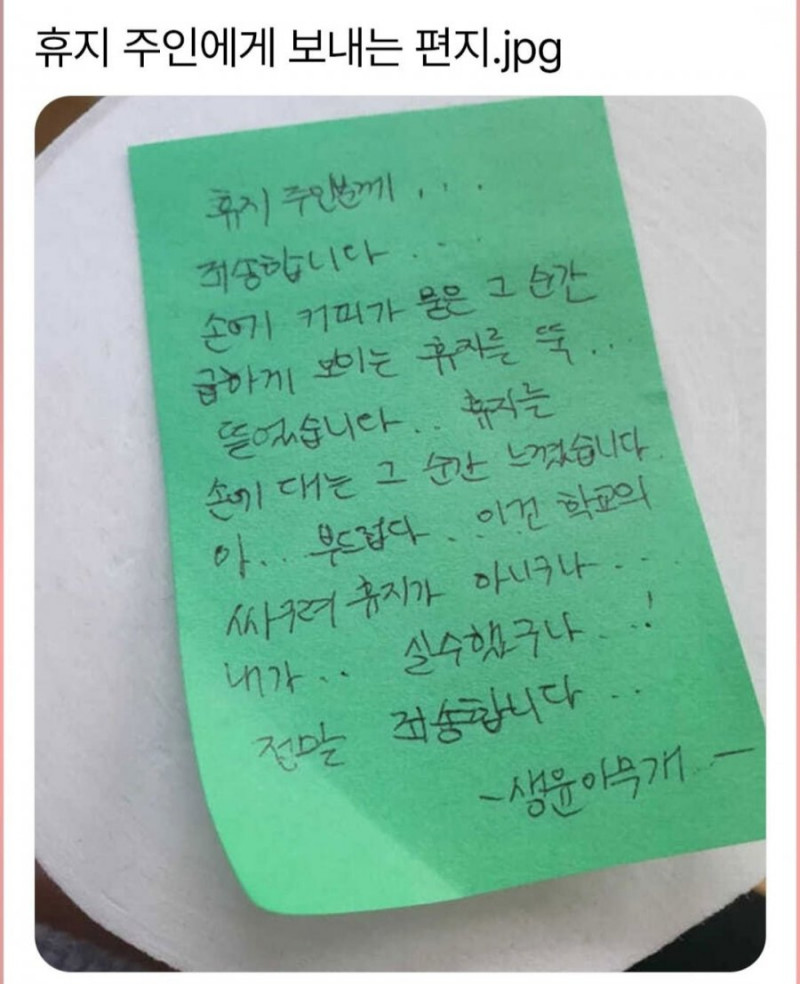 휴지 주인에게 보내는 편지.jpg
휴지 주인분께...
죄송합니다....
손에 커피가 묻은 그 순간
급하게 보이는 휴지를 뚝...
뜯었습니다.. 휴지를
손에 대는 그 순간 느꼈습니다.
아... 부드럽다.. 이건 학교의
싸구려 휴지가 아니구나...
내가.. 실수했구나..!
정말 죄송합니다..
-생윤아무개-